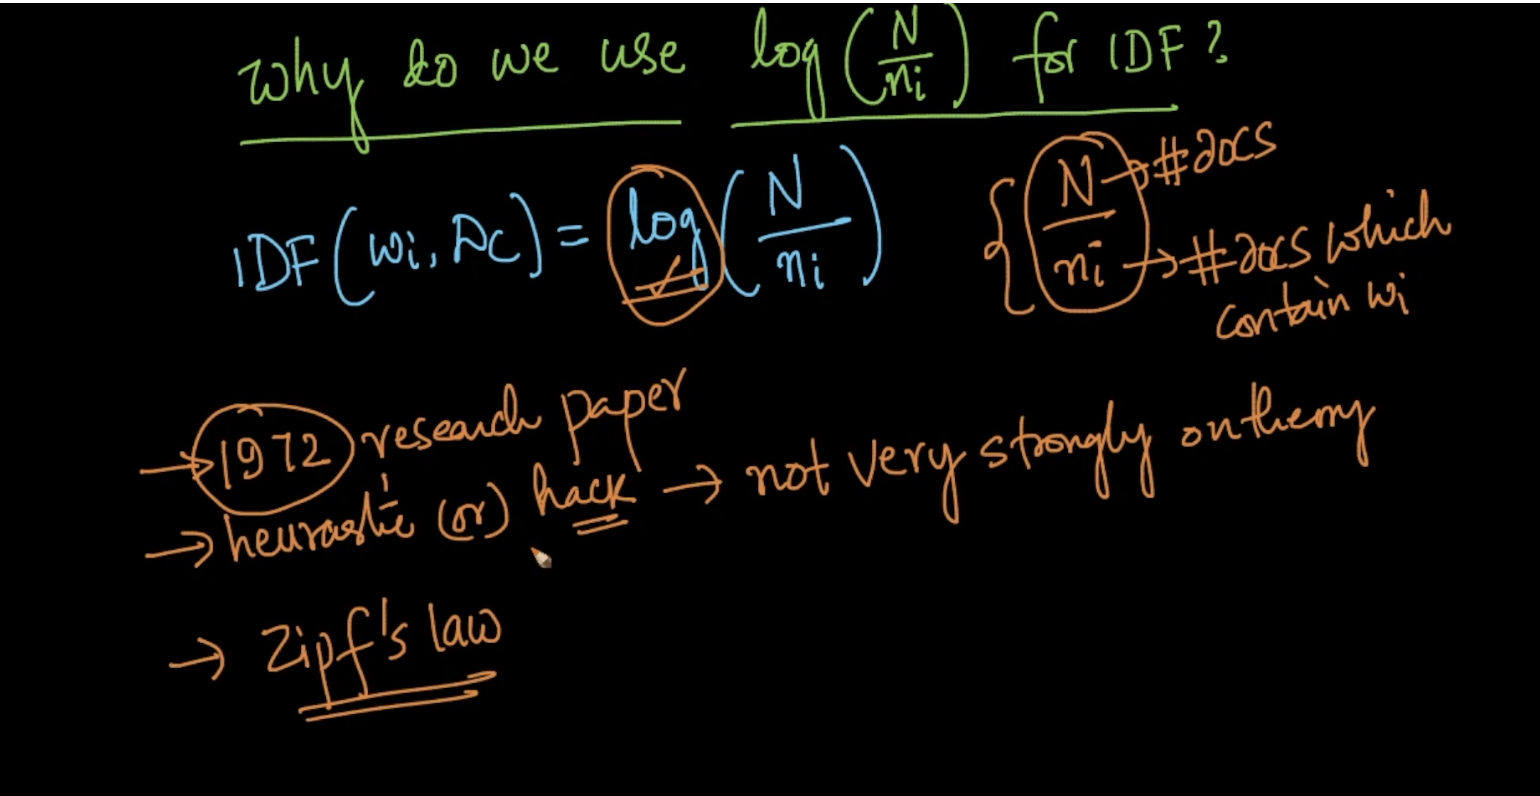 why do we use log(N/ni) for IDF?
IDF(wi, Dc) = log(N/ni)
{N → #docs
ni → #docs which
contain wi
→ 1972 research paper
→ heurastic (or) hack → not very strongly on theory
→ Zipf's law